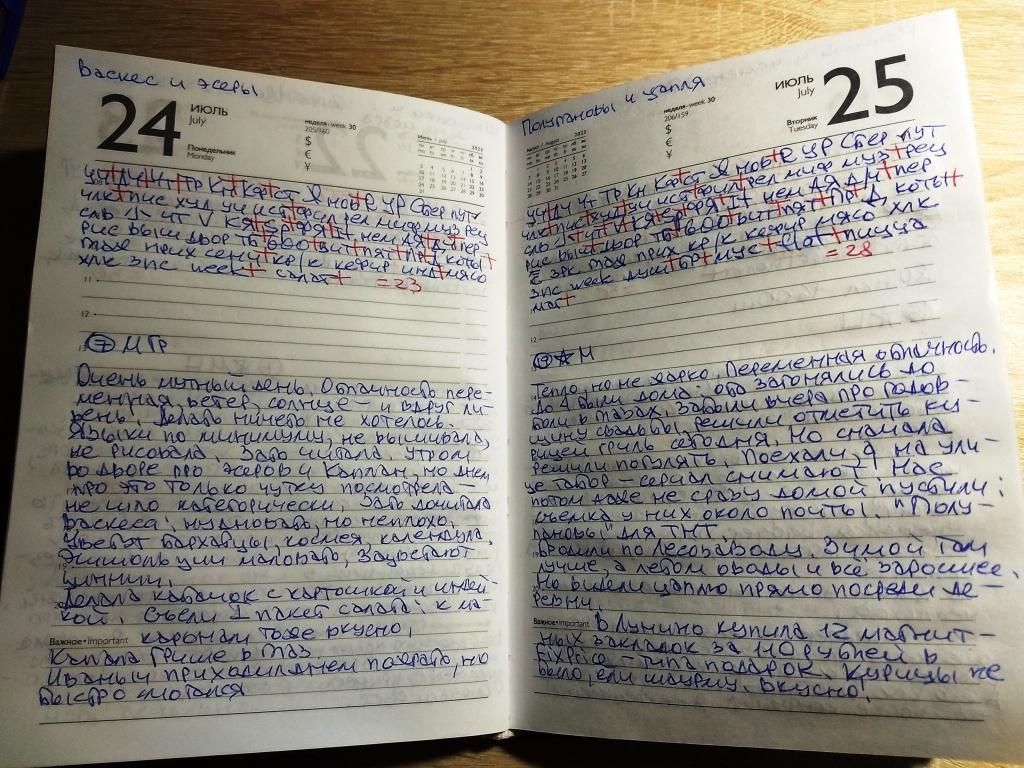 Васкес и эсеры
24 ИЮЛЬ
July
неделя-week 30
205/160
Понедельник
Monday
$
€
¥
Июль / July 2023
уч+ ду+ чт+ тр кн кф+ ст Я нов+ R УР Стер пут
члк+ пис худ уч ист+ фил рел миф муз рец
ель чт V К Я+ ер+ фя+ It нем ДЯ д/и+ пер
рис выш двор ТВ+ 600+ вит+ пят+ пр+ Д коты+
глаж прих сень+ кр/к кефир инд+ мясо
хлк зпс week+ салат+ =23
11
12
13
МГр
Очень мутный день. Облачность пере-
менная, ветер, солнце - и вдруг ли-
вень. Делать ничего не хотелось.
Языки по минимуму, не вышивала,
не рисовала. Зато читала. Утром
во дворе про эсеров и Каплан, но днем
про это только чутку посмотрела -
не шло категорически. Зато дочитала
Васкеса: нудновато, но неплохо.
Цветят бархатцы, космея, календула.
Эшшольции маловато. Зацветают
циннии.
Делала кабачок с картошкой и индей-
кой. Съели 1 пакет салата: к ма-
Важное•Important
каронам тоже вкусно.
Купала Грише в таз
Иваныч приходил днем пожрать, но
быстро смотался
Полупановы и цапля
ИЮЛЬ
July
25
неделя-week 30
206/159
Вторник
Tuesday
$
€
¥
Август / August 2023
уч+ ду+ чт ТР Кн Кф+ ст Я нов+ R УР Стер пут
члк+ пис худ+ уч ист+ фил рел миф муз+ рец
ель чт V К Я+ ер+ фя+ It нем ДЯ д/и+ пер
рис выш+ двор ТВ+ 600+ вит+ пят+ пр+ Д коты+
зрк глаж прих кр/к кефир мясо хлк
зпс week душ+ бр+ мус+ flat+ пицца
маг+ =28
12
Тепло, но не жарко. Переменная облачность.
До 1 были дома:
были в тазах. Забыли вчера про годов-
щину свадьбы, решили отметить ку-
рицей гриль сегодня. Но сначала
решили погулять. Поехали, а на ули-
це табор - сериал снимают! Нас
потом даже не сразу домой пустили:
съемка у них около почты. "Полу-
пановы" для ТНТ.
Бродили по Лесозаводу. Зимой там
лучше, а летом оводы и всё заросшее.
Но видели цаплю прямо посреди де-
ревни.
Важное•Important
В Лунино купила 12 магнит-
ных закладок за 110 рублей в
Fixprice - типа подарок. Курицы не
было, ели шаурму. Вкусно!